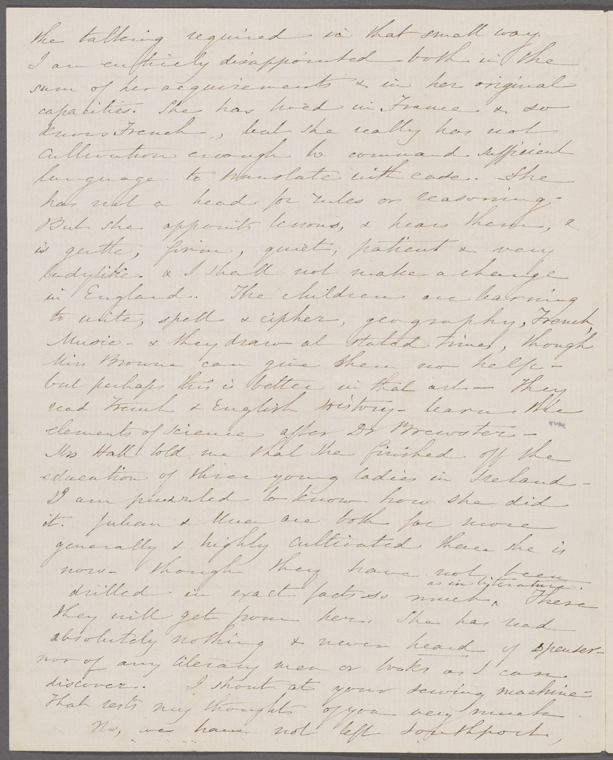 the talking required in that small way.
I am entirely disappointed both in the
sum of her acquirements & in her original
capacities. She has lived in France & so
knows French, but she really has not
cultivation enough to command sufficient
language to translate with ease. She
has not a head for rules or reasoning.
But she appoints lessons, & hears them, &
is gentle, firm, quiet, patient & very
ladylike. & I shall not make a change
in England. The children are learning
to write, spell & cipher, geography, French,
Music - & they draw at stated times, though
Miss Browne can give them no help -
but perhaps this is better in that art - They
read French & English History - learn the
elements of science after Dr Brewster -
Mrs Hall told me that she finished off the
education of three young ladies in Ireland -
I am puzzled to know how she did
it. Julian & Una are both far more
generally & highly cultivated than she is
now - though they have not been
drilled in exact facts so much, as in literature. These
they will get from her. She has read
absolutely nothing & never heard of Spenser -
nor of any literary men or books as I can
discover. I shout at your sewing machine -
That rests my thoughts of you very much
No, we have not left Southport,